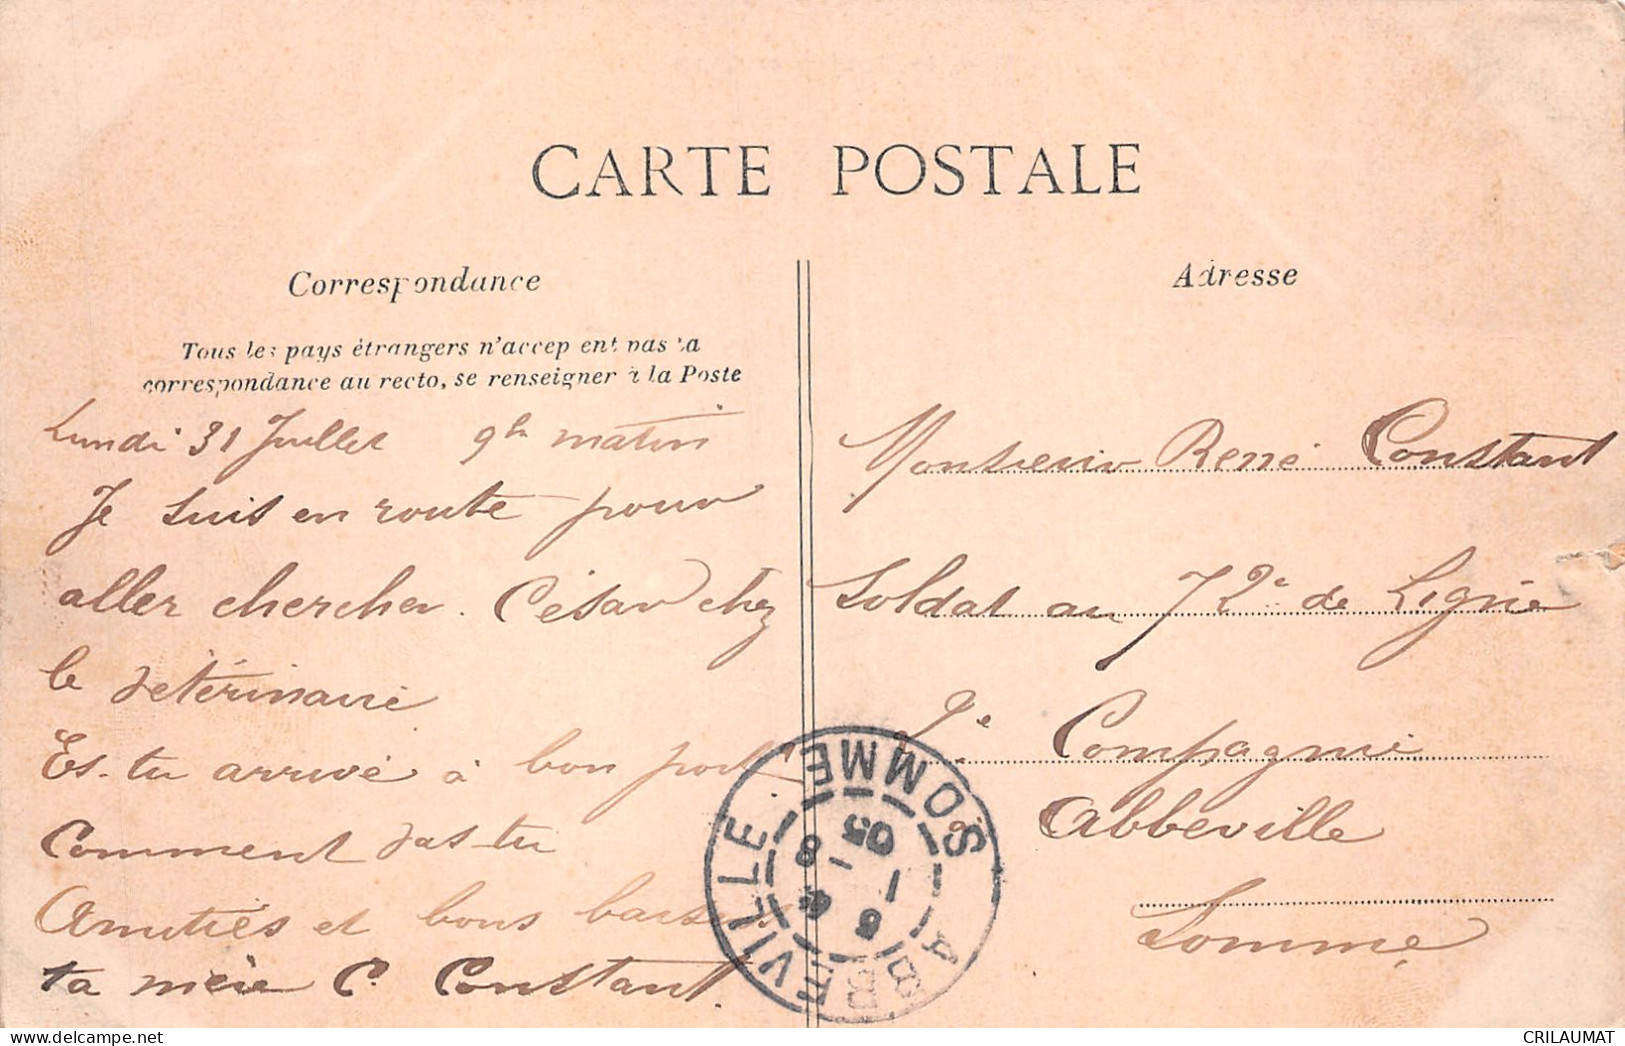 CARTE POSTALE
Correspondance
Tous les pays étrangers n'acceptent pas la
correspondance au recto, se renseigner à la Poste
Lundi 31 Juillet 9h matin
Je suis en route pour
aller chercher César chez
le vétérinaire
Es-tu arrivé à bon port
Comment vas-tu
Amitiés et bons baisers
ta mère C. Constant.
Adresse
Monsieur René Constant
Soldat au 72e de Ligne
9e Compagnie
Abbeville
Somme
ABBEVILLE SOMME
1-8
05
CRILAUMAT